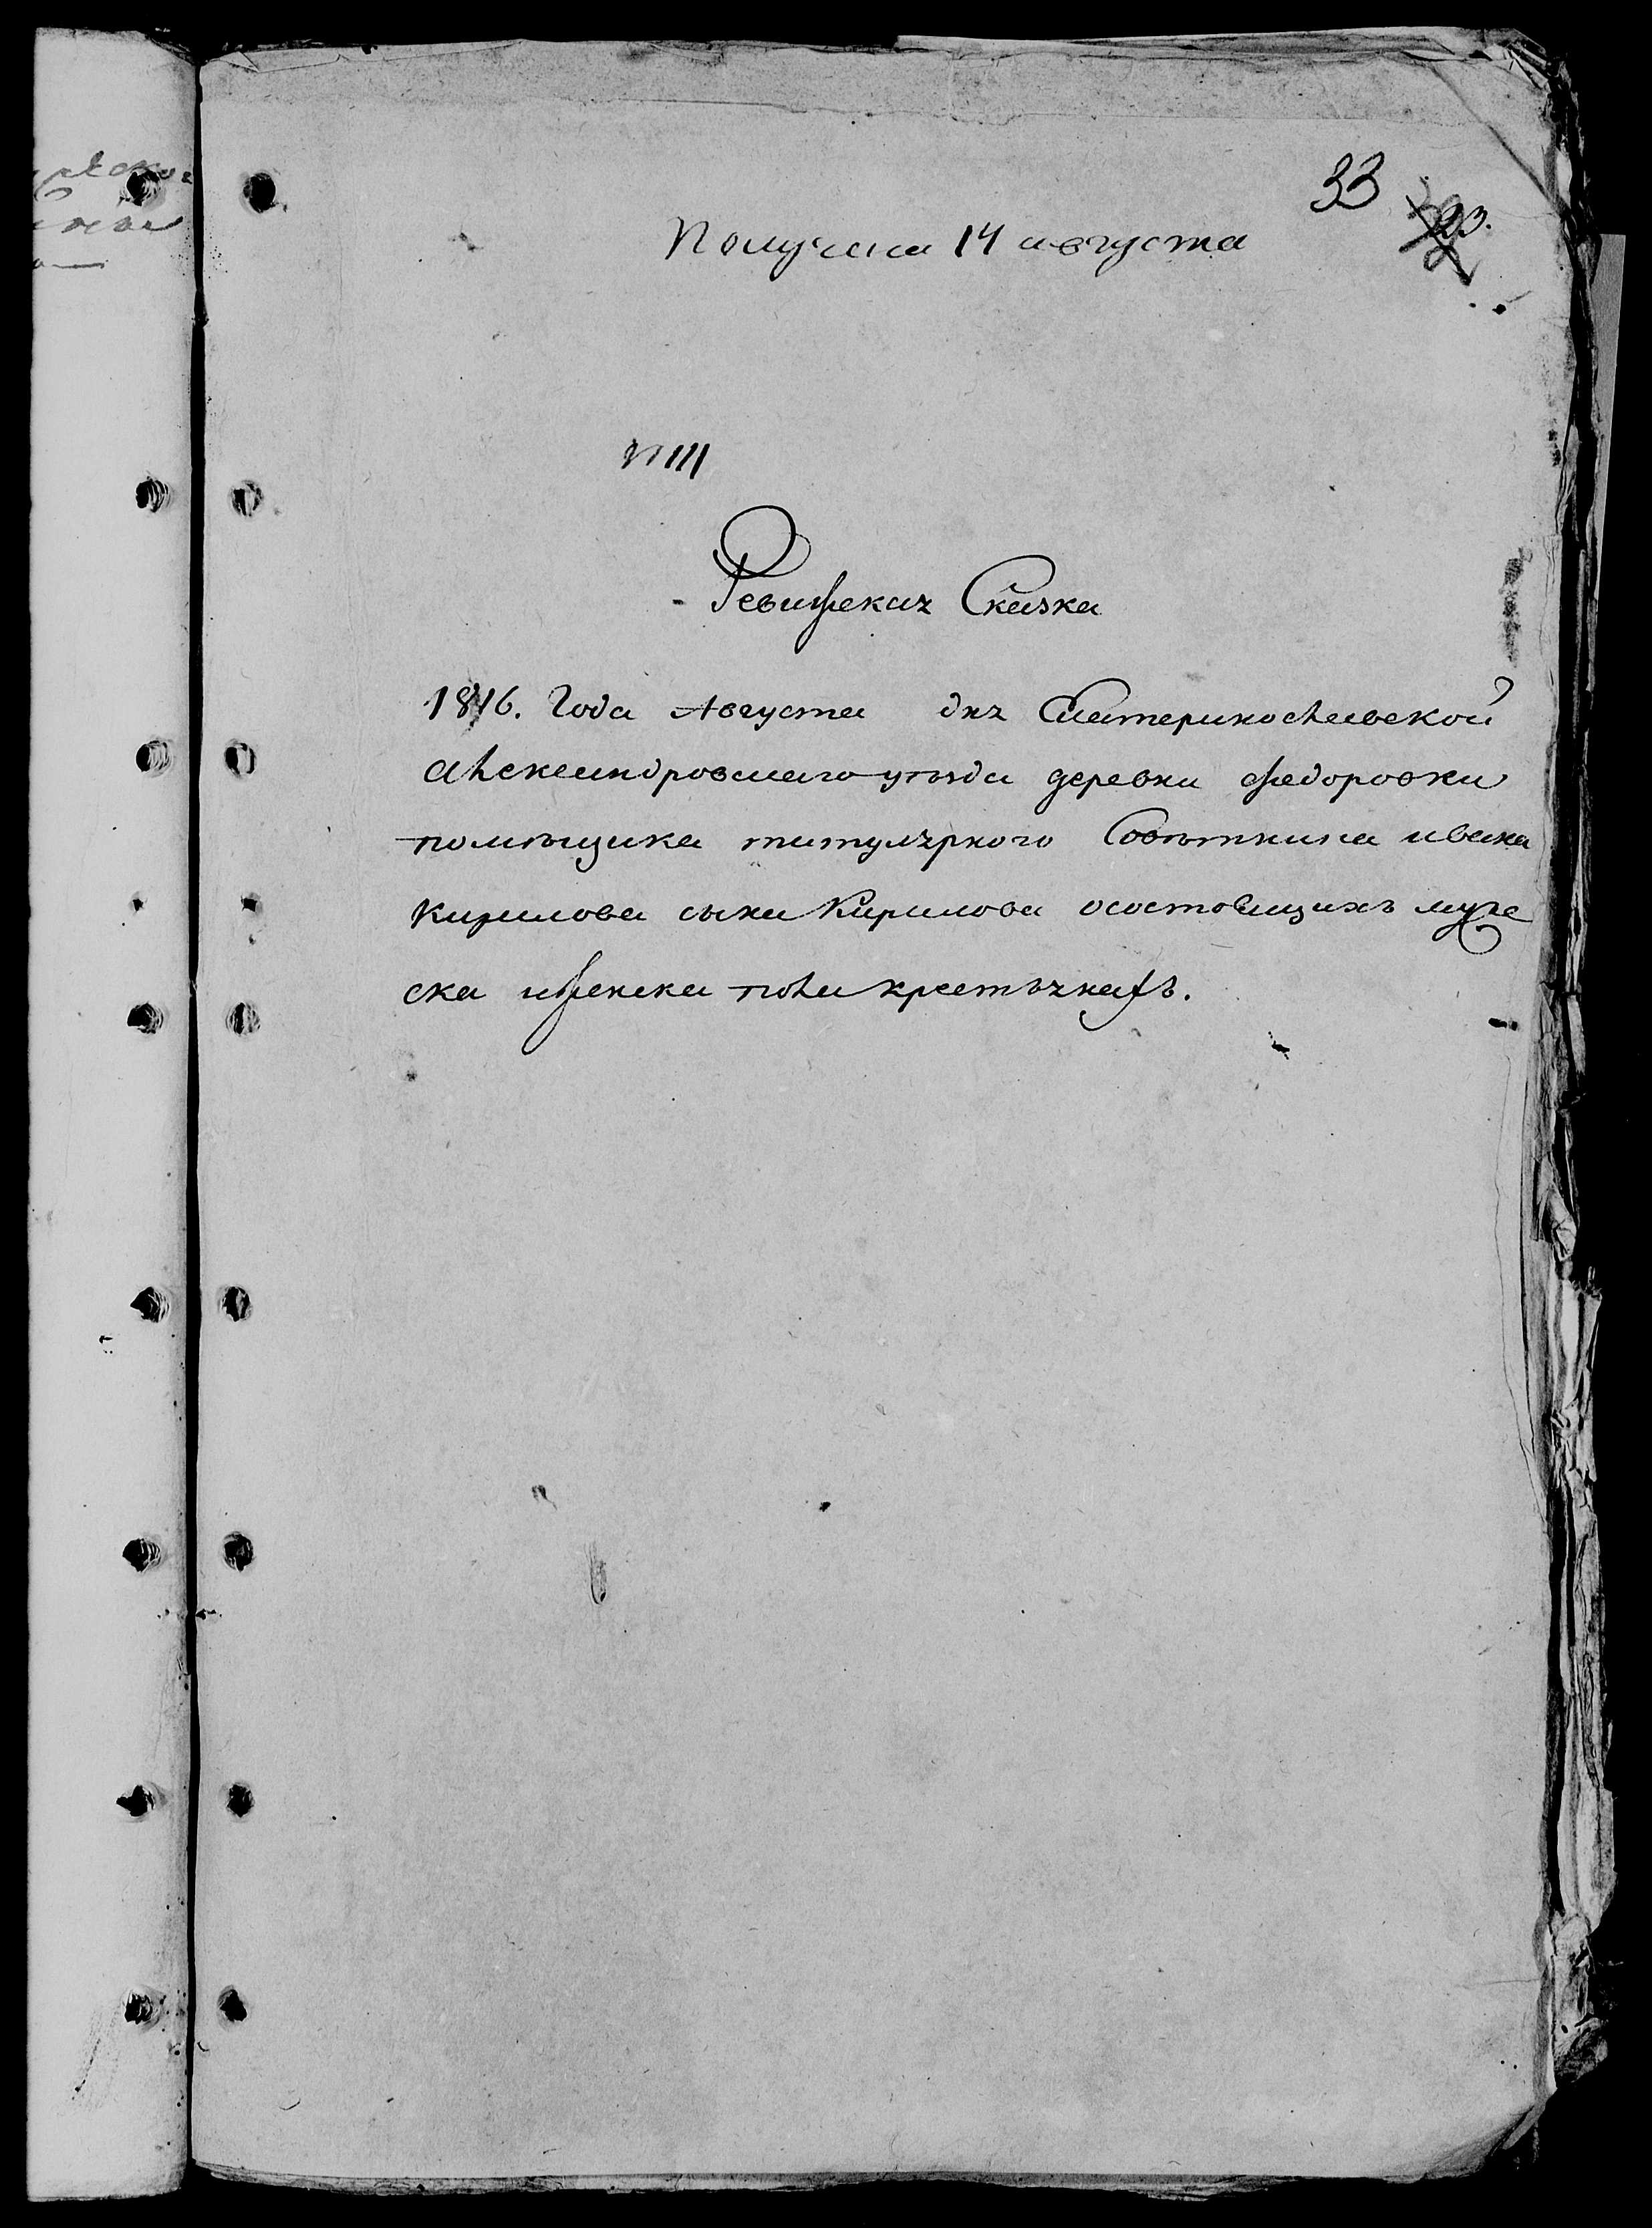 33
23.
Получена 14 августа
N 111
Ревизская Сказка
1816. Года Августа дня Екатеринославской
Александровскаго уѣзда деревни Федоровки
помѣщика титулярного Совѣтника ивана
Кирилова сына Кирилова осостоящихъ муже
ска иженска пола крестьянахъ.